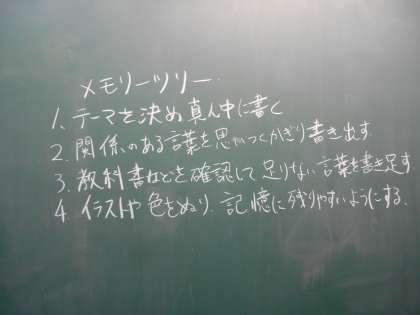 メモリーツリー
1. テーマを決め真ん中に書く
2. 関係のある言葉を思いつくかぎり書き出す
3. 教科書などを確認して足りない言葉を書き足す
4. イラストや色をぬり、記憶に残りやすいようにする。